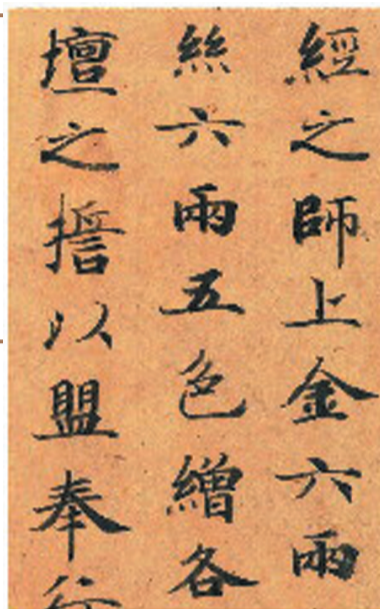 經之師上金六兩
絲六兩五色繒各
壇之誓以盟奉行